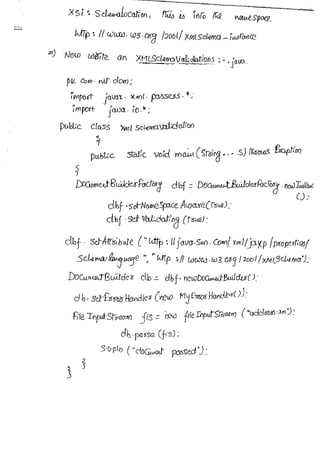 xsi : SchemaLocation, this is info the namespace.
http://www.w3.org/2001/XMLSchema-instance
=) Now write an XMLSchemaValidations :-. java.
pk com. nit. dom;
import javax. xml. parsers. *;
import java. io.*;
public class xml schemavalidation
{
public static void main(String... s) throws Exception
{
DocumentBuilderFactory dbf = DocumentBuilderFactory. newInstance
();
dbf.setNamespaceAware(true);
dbf.setValidating(true);
dbf. setAttribute ("http://java.sun.com/xml/jaxp/properties/
schemalanguage", "http://www.w3.org/2001/XMLSchema");
DocumentBuilder db = dbf.newDocumentBuilder();
db.setErrorHandler(new MyErrorHandler());
File InputStream fis = new file InputStream ("address.xml");
db.parse (fis);
S.o.pln ("document parsed");
}
}